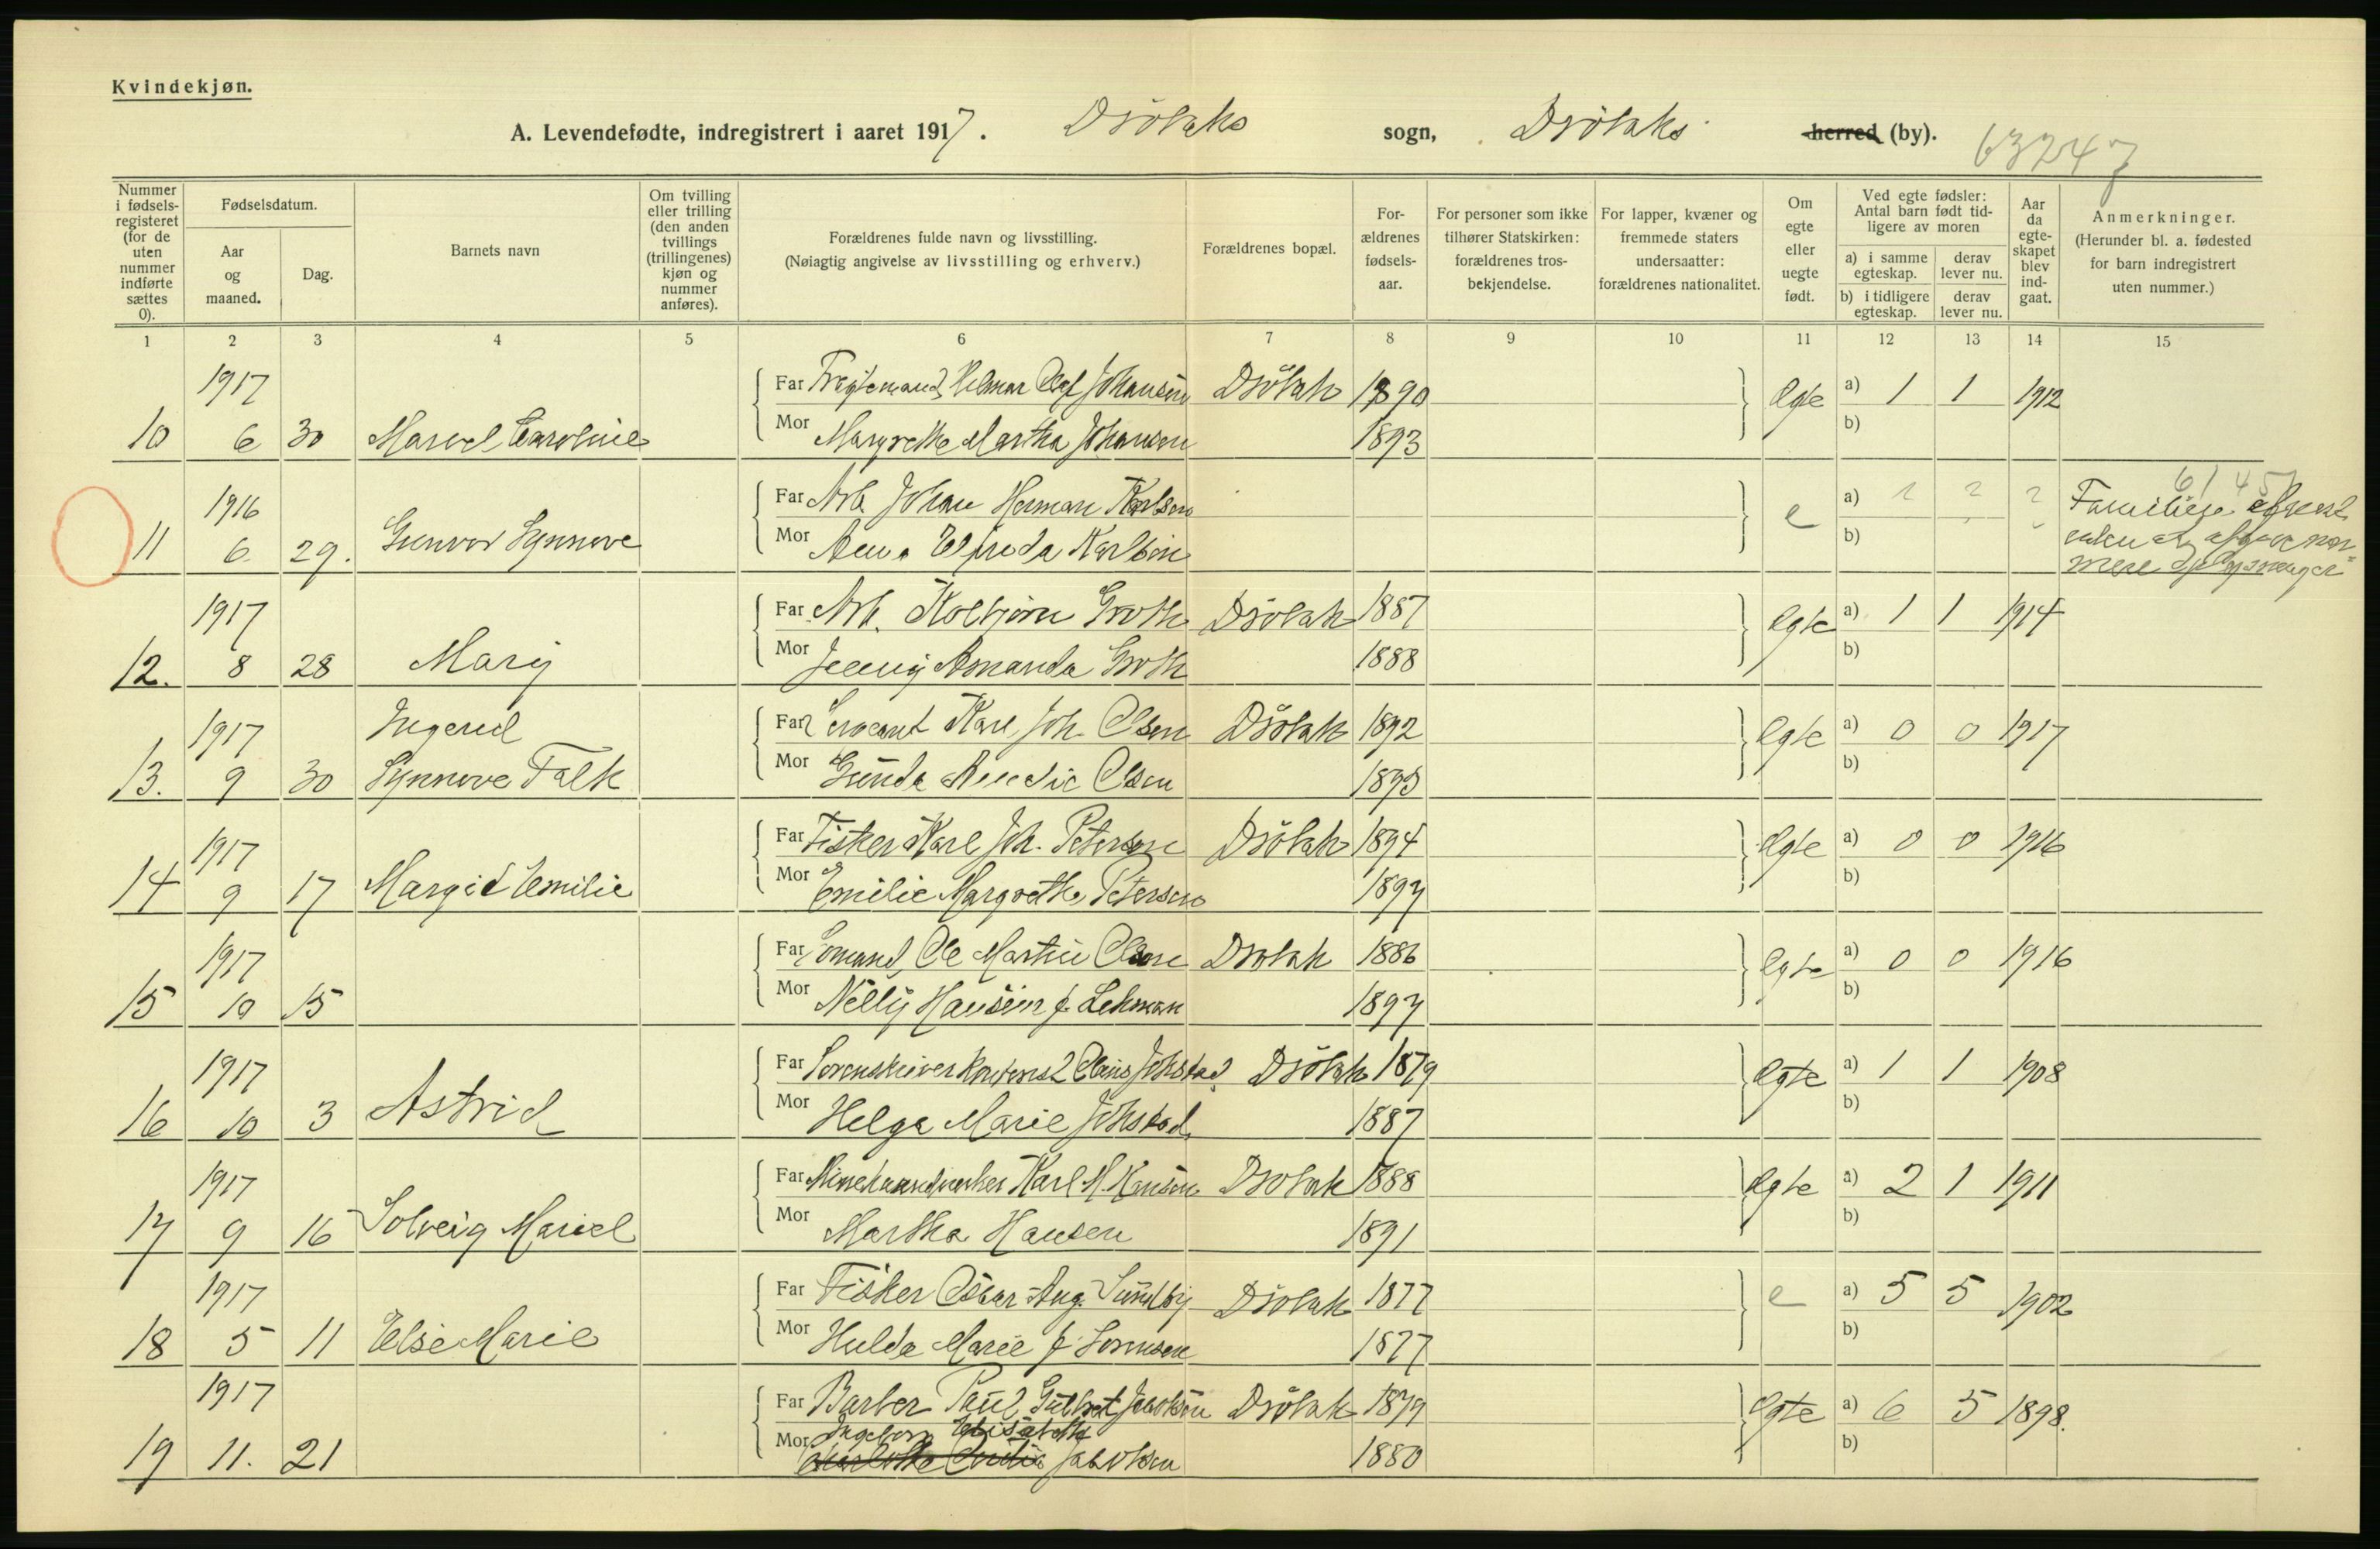 Kvindekjøn.
A. Levendefødte, indregistrert i aaret 1917. Drøbaks sogn, Drøbaks herred (by).
63247
Nummer i fødsels-registeret (for de uten nummer indførte sættes 0).
Fødselsdatum.
Aar og maaned.
Dag.
Barnets navn
Om tvilling eller trilling (den anden tvillings (trillingenes) kjøn og nummer anføres).
Forældrenes fulde navn og livsstilling.
(Nøiagtig angivelse av livsstilling og erhverv.)
Forældrenes bopæl.
For-ældrenes fødsels-aar.
For personer som ikke tilhører Statskirken: forældrenes tros-bekjendelse.
For lapper, kvæner og fremmede staters undersaatter: forældrenes nationalitet.
Om egte eller uegte født.
Ved egte fødsler: Antal barn født tid-ligere av moren
a) i samme egteskap. derav lever nu.
b) i tidligere egteskap. derav lever nu.
Aar da egte-skapet blev ind-gaat.
Anmerkninger.
(Herunder bl. a. fødested for barn indregistrert uten nummer.)
1 2 3 4 5 6 7 8 9 10 11 12 13 14 15
1917 Far Hilmar Olaf Johansen Drøbak 1890 Egte a) 1 1 1912
10 6 30 Marvel Caroline Mor Margrethe Martha Johansen 1893 b)
1916 Far Arb. Johan Herman Karlsen e a) ? ? ? 6145
11 6 29. Gunvor Synnøve Mor Anna Elfrida Karlsen b)
1917 Far Arb. Kolbjørn Groth Drøbak 1887 Egte a) 1 1 1914
12. 8 28 Mary Mor Jenny Amanda Groth 1888 b)
1917 Ingerid Far Sergeant Karl Joh. Olsen Drøbak 1892 Egte a) 0 0 1917
13. 9 30 Synnøve Falk Mor Gunda Olsen b)
1917 Far Fisker Karl Joh. Petersen Drøbak 1894 Egte a) 0 0 1916
14 9 17 Margid Emilie Mor Emilie Margrethe Petersen 1897 b)
1917 Far Sømand Ole Martin Olsen Drøbak 1886 Egte a) 0 0 1916
15 10 15 Mor Nelly Hansen f. Lehman 1897 b)
1917 Far Sorenskriver Drøbak 1879 Egte a) 1 1 1908
16 10 3 Astrid Mor Helga Marie 1887 b)
1917 Far Minehaandverker Karl M. Hansen Drøbak 1888 Egte a) 2 1 1911
17 9 16 Solveig Mariel Mor Martha Hansen 1891 b)
1917 Far Fisker Oskar Aug. Sundby Drøbak 1877 e a) 5 5 1902
18 5 11 Else Marie Mor Hulda Marie f. Sørensen 1877 b)
1917 Far Barber Paul Gulbret Jacobsen Drøbak 1879 Egte a) 6 5 1898.
Ingeborg Elisabeth
19 11. 21 Mor Jacobsen 1880 b)